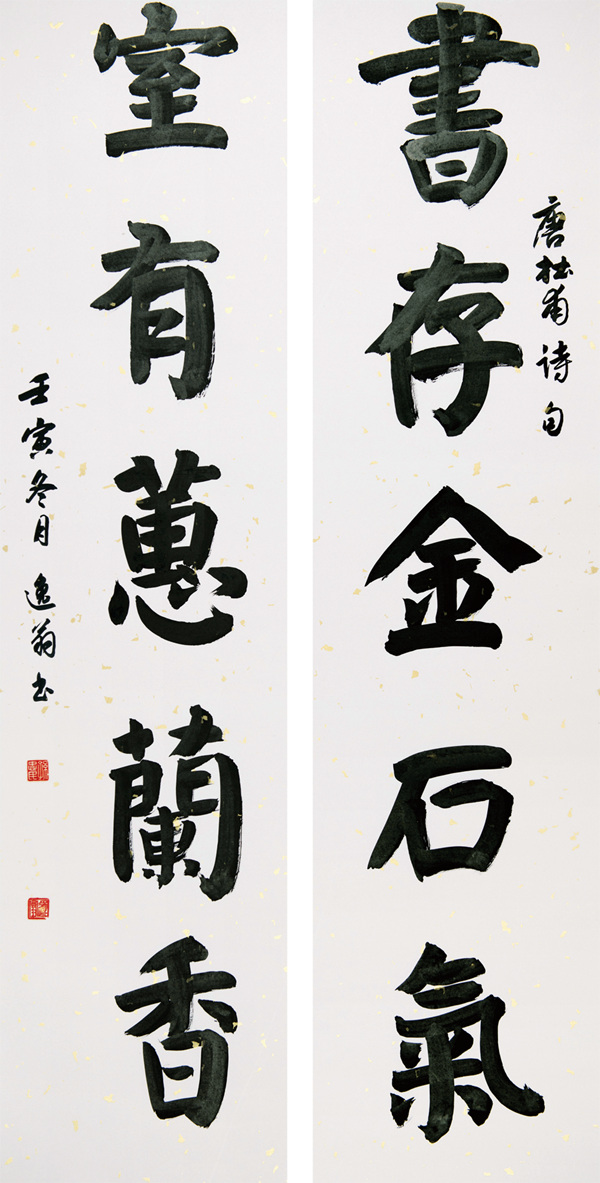 書存金石氣
唐杜甫诗句
室有蕙蘭香
壬寅冬月 逸翁书